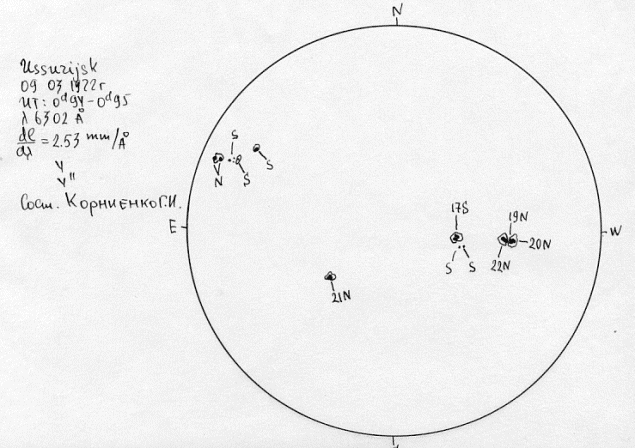 Ussurijsk
09 03 1922г
UT: 0ᵈ94-0ᵈ95
λ 6302 Å
dl/dλ = 2.53 mm/Å
Y
Y"
Сост. Корниенко Г.И.
N
S
S
N
S
E
W
17S
19N
20N
22N
S S
21N